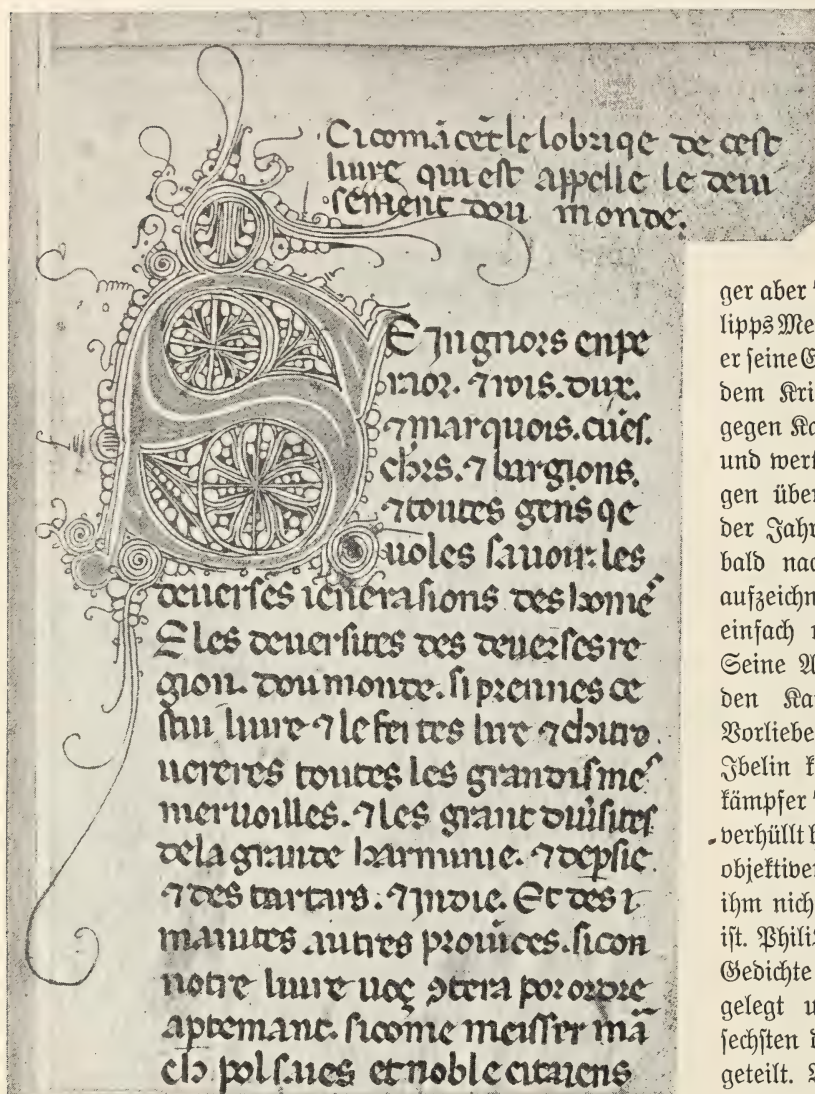 Ci comācēt le lobriqe de cest
liure qui est appelle le deui
sement dou monde.
SEingnors enpe
raor. ⁊ rois. dux.
⁊ marquois. cuēs.
chrs. ⁊ bargions.
⁊ toutes gens qe
uoles sauoir. les
deuerses ienerasions des home
E les deuersites des deuerses re
gion. dou monde. si prennes ce
stui liure ⁊ le feites lire ⁊ chi tro
uereres toutes les grandisme
meruoilles. ⁊ les grant diuˀsites
de la grande harminie. ⁊ de psie.
⁊ des tartars. ⁊ jndie. Et des
maintes autres prouices. si con
notre liure uoç ꝯtera por ordre
aptemant. si come meisser mā
ch pol saies et noble citaiens
ger aber
lipps Me
er seine
dem Kri
gegen Ka
und werf
gen über
der Jahr
bald nac
aufzeichn
einfach
Seine A
den Kai
Vorliebe
Ibelin
kämpfer
verhüllt
objektiver
ihm nich
ist. Phili
Gedichte
gelegt u
sechsten
geteilt.